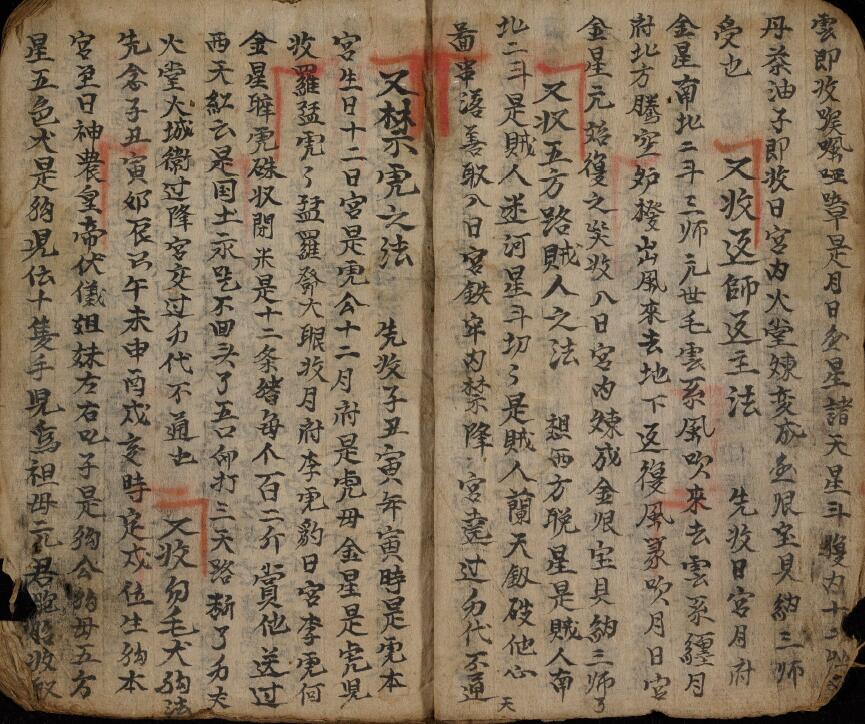 雲即收喉嘴啞障是月日金星諸天星斗腹内十二
丹茶油子即收日宮内火堂煉変成金銀宝貝納三师
受也　又收返師返主法　先收日宮月府
金星南北二斗三师元世毛雲系風吹來去雲系纏月
府北方騰空妒撥出風來去地下返復風家吹月日宮
金星元始復之矣收入日宮内煉成金銀宝貝納三师了
又收五方路賊人之法　想西方脱星是賊人南
北二斗是賊人迷河星斗切々是賊人蘭天釼破他心天
善取入日宮鉄牢内禁降宮堯过方代不通
又禁虎之法　先收子丑寅年寅時是虎本
宮生日十二日宮是虎公十二月府是虎母金星是虎児
收羅猛虎々猛羅發大眼收月府李虎豹日宮李虎何
金星聹虎硃收閉米是十二条猪每个百二斤賞他送过
西天紅云是国土永吃不回头了五口仰打三天路斬了方大
火堂火城衞过降宮交过方代不通也　又收勿毛犬狗法
先念子丑寅卯辰巳午未申酉戍亥時定戍位生狗本
宮至日神農皇帝伏儀姐妹左右也子是狗公狗母五方
星五色犬是狗児伝十隻手児為祖母元君